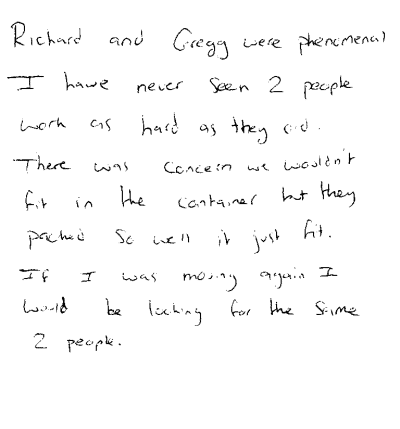 Richard and Gregg were phenomenal
I have never seen 2 people
work as hard as they did.
There was concern we wouldn't
fit in the container but they
packed so well it just fit.
If I was moving again I
would be looking for the same
2 people.